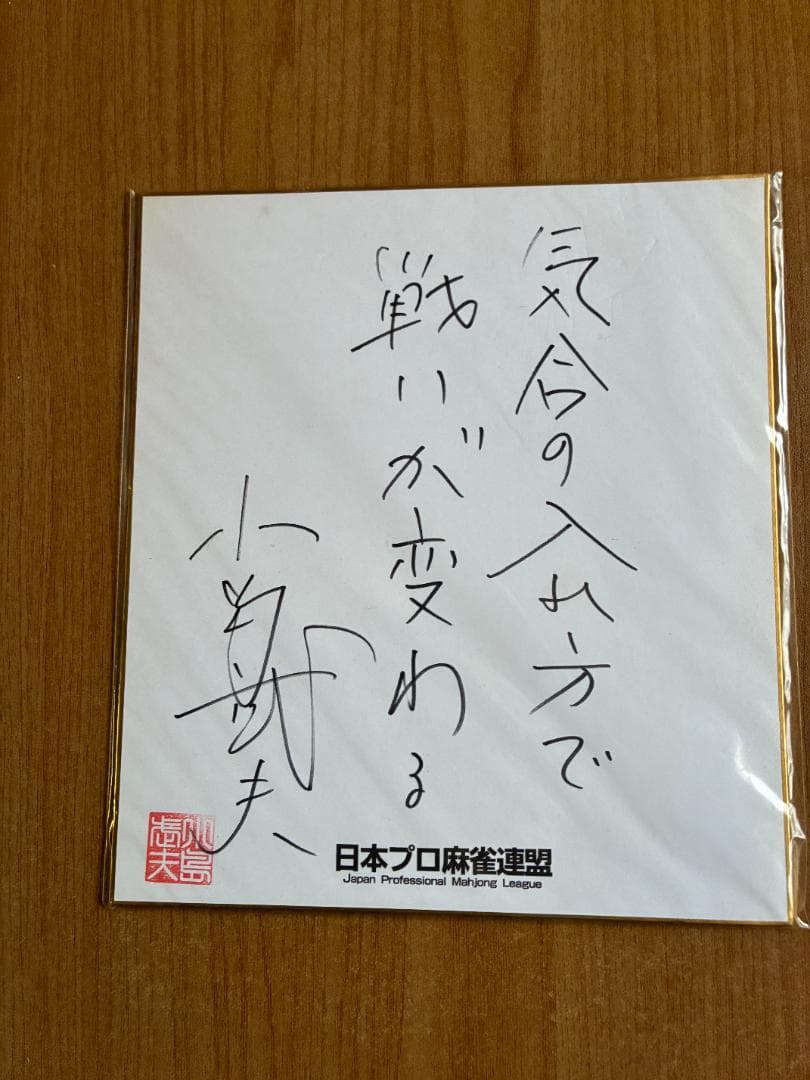 気合の入れ方で
戦いが変わる
小島武夫
小島武夫
日本プロ麻雀連盟
Japan Professional Mahjong League